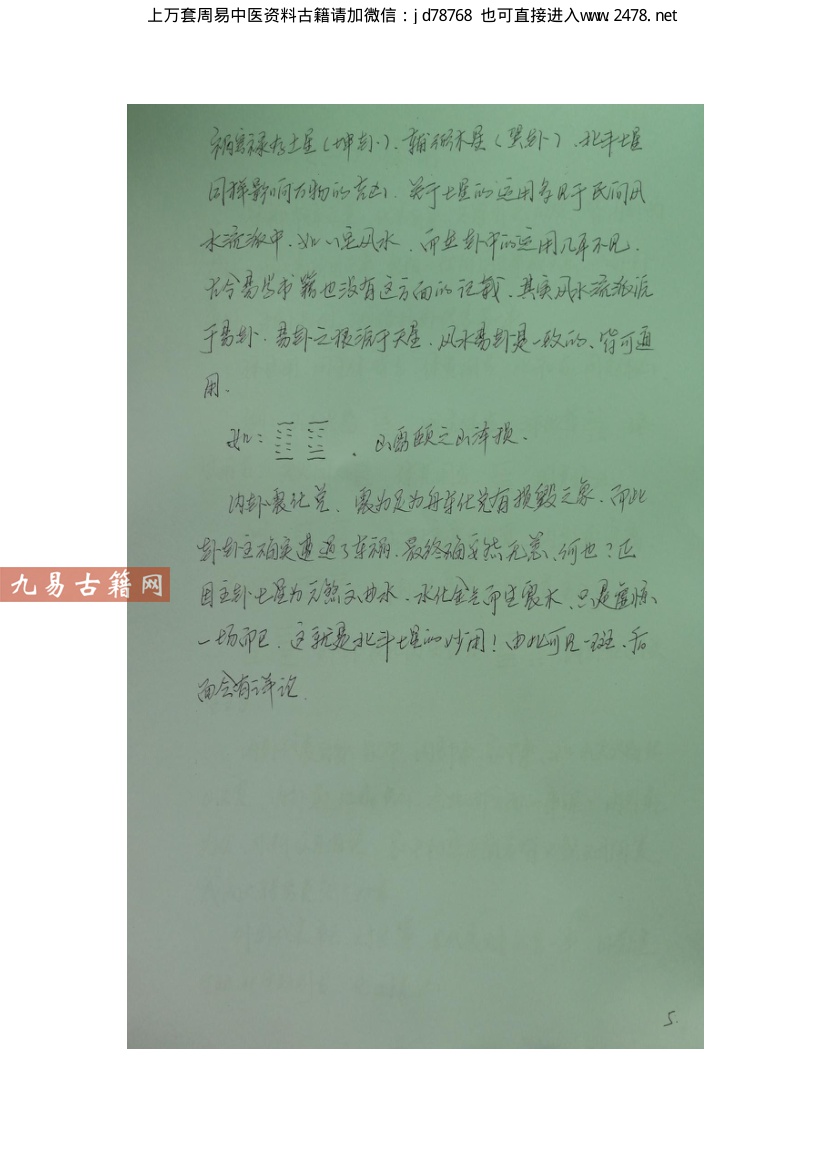 上万套周易中医资料古籍请加微信：jd78768 也可直接进入www.2478.net
祸害禄存土星（坤卦）、辅弼木星（巽卦）、北斗七星
同样影响万物的吉凶。关于七星的运用多见于民间风
水流派中，如八宅风水，而在卦中的运用几乎不见。
古今易学书籍也没有这方面的记载，其实风水流派源
于易卦，易卦之根源于天星，风水易卦是一致的，皆可通
用。
如： ，山雷颐之山泽损。
内卦震化兑，震为足为舟车化兑有损毁之象，而此
卦卦主确实遭遇了车祸，最终确安然无恙，何也？正
因主卦七星为六煞文曲水，水化金兑而生震木，只是虚惊
一场而已，这就是北斗七星的妙用！由此可见一斑，后
面会有详论。
九易古籍网
5.